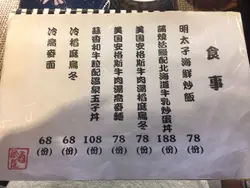 食事
明太子海鮮炒飯
78
(份)
蒲燒活鰻配北海道牛乳炒蛋丼
188
(份)
美国安格斯牛肉湯稻庭烏冬
78
(份)
美国安格斯牛肉湯蕎麥麵
78
(份)
蒜香和牛粒配溫泉玉子丼
108
(份)
冷稻庭烏冬
68
(份)
冷蕎麥麵
68
(份)